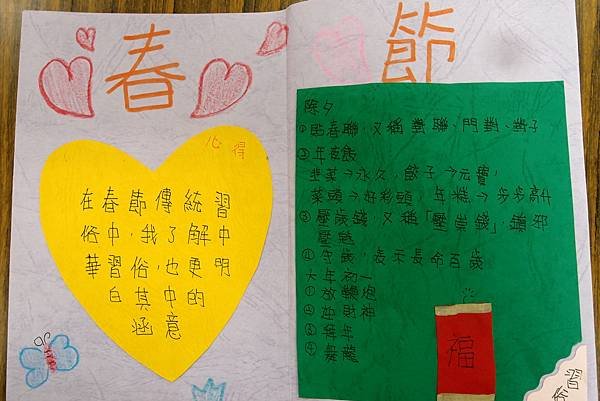 春節
心得
在春節傳統習
俗中,我了解中
華習俗,也更明
白其中的
涵意
除夕
①貼春聯,又稱對聯、門對、對子
②年夜飯
韭菜→永久,餃子→元寶,
菜頭→好彩頭,年糕→步步高升
③壓歲錢,又稱「壓祟錢」,鎮邪
④守歲,表示長命百歲
大年初一
①放鞭炮
②迎財神
③拜年
④舞龍
福
習俗